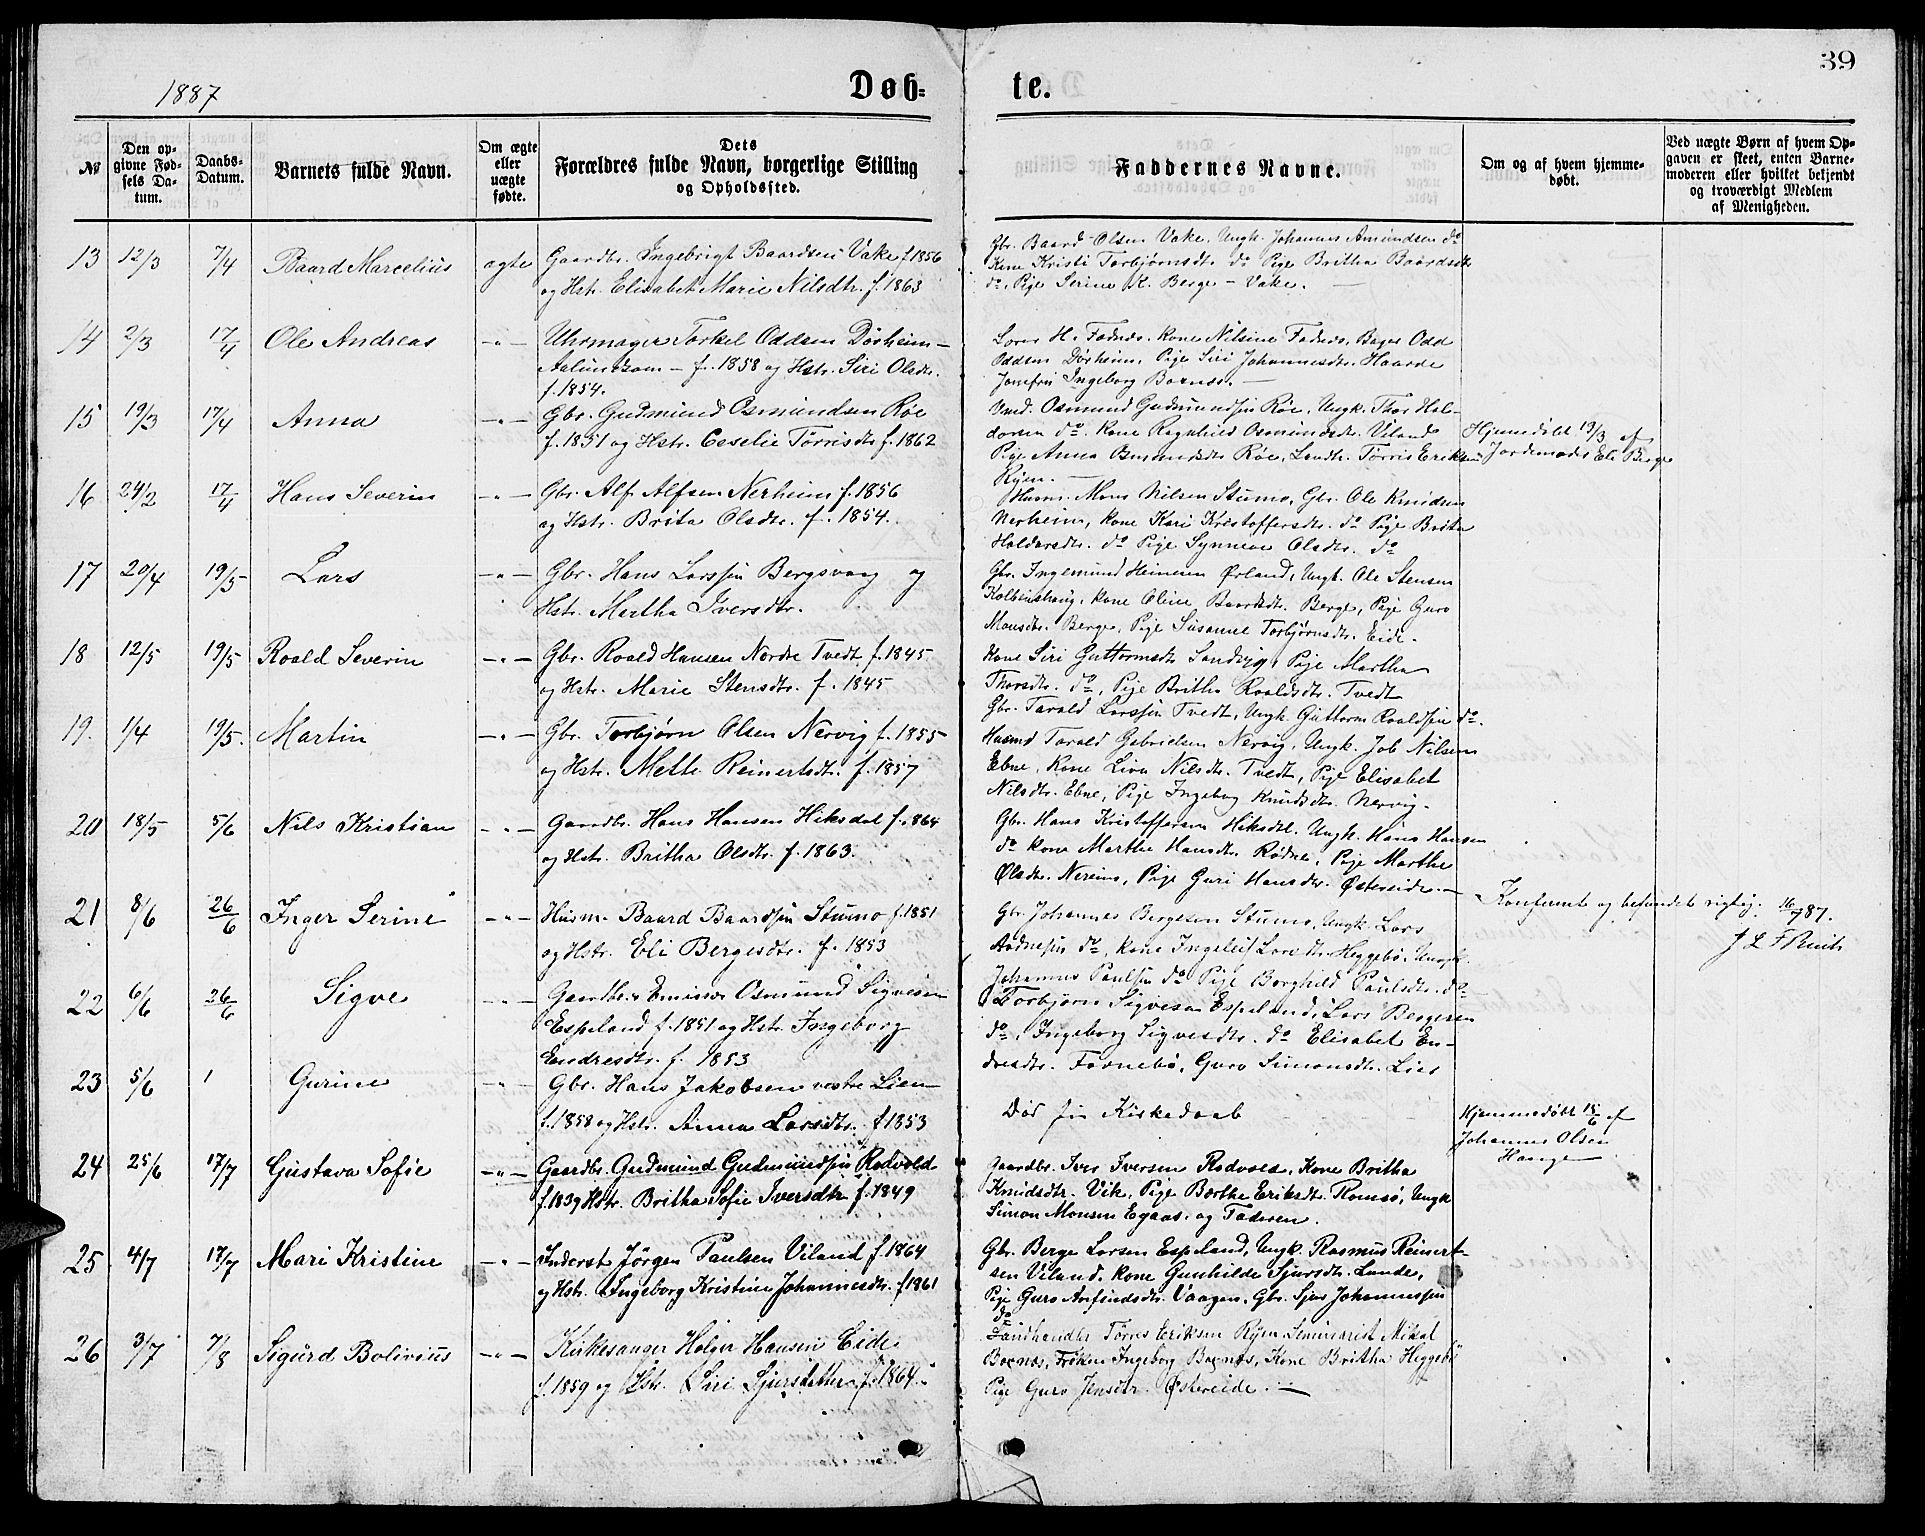 39
1887
Døb-
te.
№
Den opgivne Fødsels Datum.
Daabs-Datum.
Barnets fulde Navn.
Om ægte eller uægte fødte.
Dets Forældres fulde Navn, borgerlige Stilling og Opholdssted.
Faddernes Navne.
Om og af hvem hjemmedøbt.
Ved uægte Børn af hvem Opgaven er skeet, enten Barnemoderen eller hvilket bekjendt og troværdigt Medlem af Menigheden.
13 12/3 7/4 Baard Marcelius ægte Gaardbr. Ingebrigt Baardsen Vake f. 1856
og Hstr. Elisabet Marie Nilsdtr. f. 1863
Gbr. Baard Olsen Vake, Ungk. Johannes Amundsen do
Kone Kristi Torbjørnsdtr. do Pige Britha Baardsdtr
do, Pige Serine K. Berge - Vake. —
14 2/3 17/4 Ole Andreas -"- Uhrmager Torkel Oddsen Dørheim -
f. 1858 og Hstr. Siri Olsdtr.
f. 1854.
Lars H. Fadnes, Kone Nilsine Fadnes, Bager Odd
Oddsen Dørheim, Pige Siri Johannesdtr. Haarde
Jomfru Ingeborg Boknes. —
15 19/3 17/4 Anna -"- Gbr. Gudmund Osmundsen Røe
f. 1851 og Hstr. Ceselie Tørrisdtr f. 1862
Osmund Gudmundsen Røe, Ungk. Thor Hol-
dorsen do. Kone Ragnhild Osmundsdtr. Viland
Pige Anna Røe, Landh. Tørris Eriksen
Ryen. —
Hjemmedøbt 19/3 af
Jordemoder Eli Berge
16 24/2 17/4 Hans Severin -"- Gbr. Alf Alfsen Nerheim f. 1856
og Hstr. Brita Olsdtr. f. 1854.
Husm. Mons Nilsen Stumo, Gbr. Ole Knudsen
Nerheim, Kone Kari Kristoffersdtr. do Pige Brita
Haldorsdtr. do Pige Synneve Olsdtr. do
17 20/4 19/5 Lars -"- Gbr. Hans Larssen Bergsvaag og
Hstr. Martha Iversdtr.
Gbr. Ingemund Heinesen Ørland, Ungk. Ole Stensen
Kolbenshaug, Kone Oline Baardsdtr. Berge, Pige Guro
Monsdtr. Berge, Pige Susanne Torbjørnsdtr. Eide.
18 12/5 19/5 Roald Severin -"- Gbr. Roald Hansen Nordre Tvedt f. 1845
og Hstr. Marie Stensdtr. f. 1845
Kone Siri Guttormsdtr Sandvig, Pige Martha
Thorsdtr. do, Pige Britha Roaldsdtr. Tvedt
Gbr. Tarald Larssen Tvedt, Ungk. Guttorm Roaldsen do.
19. 1/4 19/5. Martin -"- Gbr. Torbjørn Olsen Nervig f. 1855
og Hstr. Mette Reinertsdtr. f. 1857
Husmd Tarald Gabrielsen Nervig, Ungk. Job Nilsen
Ebne, Kone Liva Nilsdtr. Tvedt, Pige Elisabet
Nilsdtr. Ebne, Pige Ingeborg Knudsdtr. Nervig.
20 18/5 5/6 Nils Kristian -"- Gaardbr. Hans Hansen Hiksdal f. 1864
og Hstr. Britha Olsdtr. f. 1863.
Gbr. Hans Kristoffersen Hiksdal. Ungk. Hans Hansen
do Kone Marthe Hansdtr. Rødne, Pige Marthe
Olsdtr. Nereim, Pige Guri Hansdtr. Østereide. —
21 8/6 26/6 Inger Serine -"- Husm. Baard Baardsen Stumo f. 1851
og Hstr. Eli Bergesdtr. f. 1853
Gbr. Johannes Bergeson Stumo, Ungk. Lars
do, Kone Ingeleif Larsdtr. Heggebø, Ungk.
Johannes Paulsen do Pige Borghild Paulsdtr. do
og befundet rigtig. 16/ 87.
22 6/6 26/6 Sigve -"- Gaardbr. Osmund Sigvesen
Espeland f. 1851 og Hstr. Ingeborg
Endresdtr. f. 1853
Torbjørn Sigvesen Espeland, Lars Bergesen
do, Ingeborg Sigvesdtr. do Elisabet En-
dresdtr. Fornebø, Guro Simonsdtr. Lien
23 5/6 Gurine -"- Gbr. Hans Jakobsen vestre Lien
f. 1858 og Hstr. Anna Larsdtr. f 1853
Død før Kirkedaab
Hjemmedøbt 15/6 af
Johannes Olsen
Hauge
24 25/6 17/7 Gustava Sofie -"- Gaardbr. Gudmund Gudmundsen Rødvold
f. 1839 Hstr. Britha Sofie Iversdtr f. 1849
Gaardbr. Iver Iversen Rødvold, Kone Britha
Knudsdtr. Vik, Pige Barthe Eriksdtr. Romsø, Ungk
Simon Monsen Egaas, og Faderen.
25 4/7 17/7 Mari Kristine -"- Inderst Jørgen Paulsen Viland f. 1864
og Hstr. Ingeborg Kristine Johannesdtr. f 1861
Gbr. Berge Larsen Espeland, Ungk. Rasmus Reinert-
sen Viland. Kone Gunhilde Sjursdtr. Lunde,
Pige Guro Anfindsdtr. Vaagen, Gbr. Sjur Johannessen
do
26 3/7 7/8 Sigurd Bolivius -"- Kirkesanger Holger Hansen Eide
f. 1859 og Hstr. Siri Sjursdatter f. 1864.
Landhandler Tørres Eriksen Ryen Seminarist Mikal
Boknes, Frøken Ingeborg Boknes, Kone Britha Heggebø
Pige Guro Jensdtr. Østereide. —